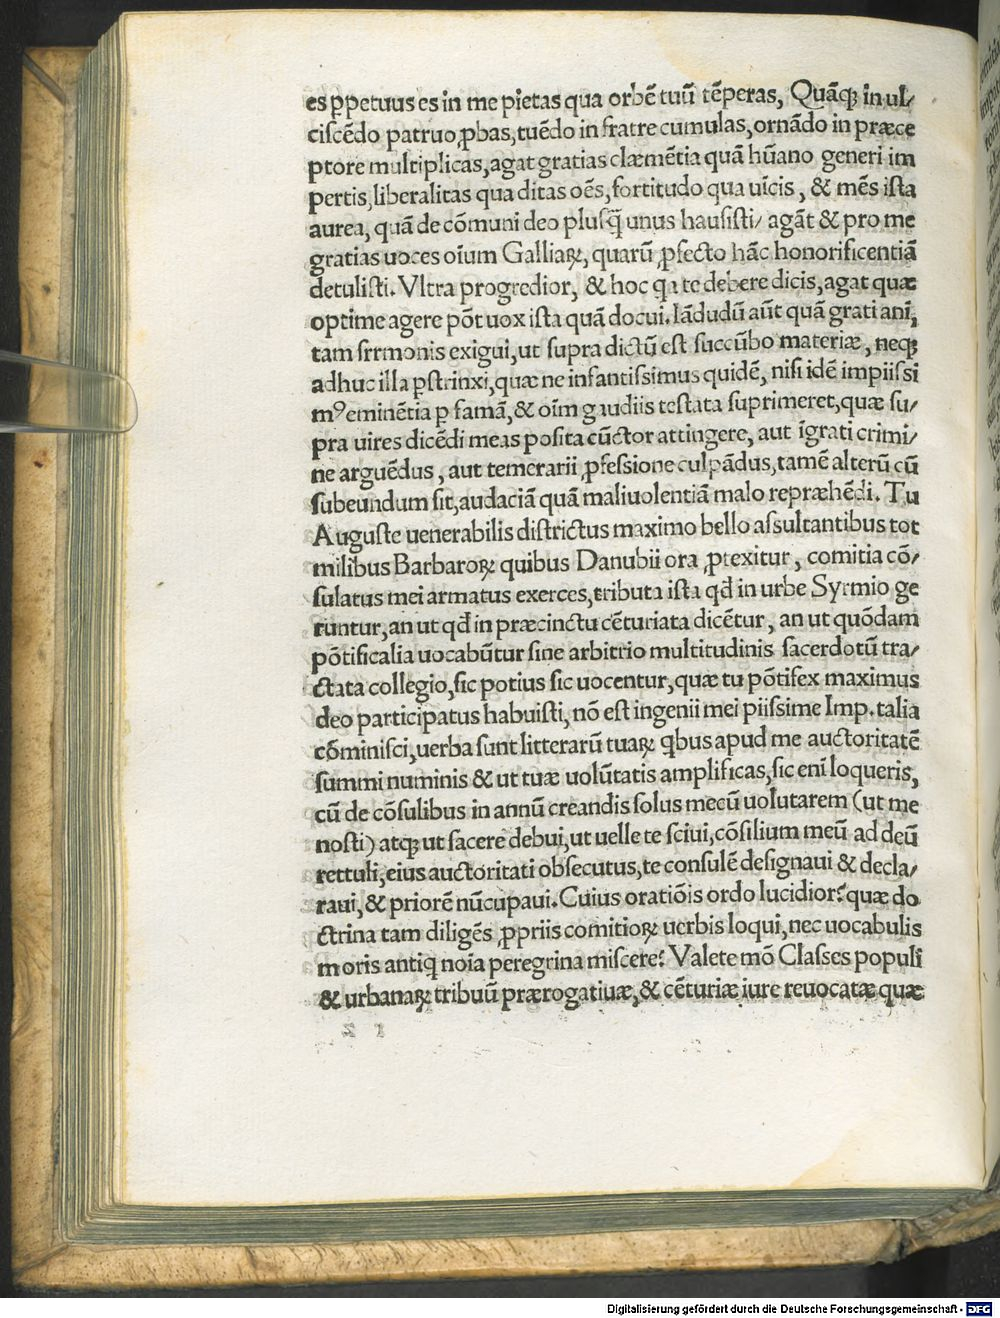 es ꝑpetuus es in me pietas qua orbē tuū tēperas, Quāqꝫ in ul/
ciſcēdo patruo ꝓbas, tuēdo in fratre cumulas, ornādo in præce
ptore multiplicas, agat gratias clæmētia quā hūano generi im
pertis, liberalitas qua ditas oēs, fortitudo qua uīcis, & mēs iſta
aurea, quā de cōmuni deo pluſq̄ unus hauſiſti/ agāt & pro me
gratias uoces oīum Galliaꝝ, quarū ꝓfecto hāc honorificentiā
detuliſti. Vltra progredior, & hoc qa te debere dicis, agat quæ
optime agere pōt uox iſta quā docui. Iādudū aūt quā grati ani,
tam ſrrmonis exigui, ut ſupra dictū eſt ſuccūbo materiæ, neqꝫ
adhuc illa ꝑſtrinxi, quæ ne infantiſſimus quidē, niſi idē impiiſſi
mꝰ eminētia ꝑ famā, & oīm gaudiis teſtata ſuprimeret, quæ ſu/
pra uires dicēdi meas poſita cūctor attingere, aut īgrati crimi/
ne arguēdus, aut temerarii ꝓfeſſione culpādus, tamē alterū cū
ſubeundum ſit, audaciā quā maliuolentiā malo repræhēdi. Tu
Auguſte uenerabilis diſtrictus maximo bello aſſultantibus tot
milibus Barbaroꝝ quibus Danubii ora ꝓtexitur, comitia cō/
ſulatus mei armatus exerces, tributa iſta qđ in urbe Syrmio ge
runtur, an ut qđ in præcinctu cēturiata dicētur, an ut quōdam
pōtificalia uocabūtur ſine arbitrio multitudinis ſacerdotū tra/
ctata collegio, ſic potius ſic uocentur, quæ tu pōtifex maximus
deo participatus habuiſti, nō eſt ingenii mei piiſſime Imp. talia
cōminiſci, uerba ſunt litterarū tuaꝝ qbus apud me auctoritatē
ſummi numinis & ut tuæ uolūtatis amplificas, ſic eni loqueris,
cū de cōſulibus in annū creandis ſolus mecū uolutarem (ut me
noſti) atqꝫ ut facere debui, ut uelle te ſciui, cōſilium meū ad deū
rettuli, eius auctoritati obſecutus, te conſulē deſignaui & decla/
raui, & priorē nūcupaui. Cuius oratiōis ordo lucidior? quæ do
ctrina tam diligēs ꝓpriis comitioꝝ uerbis loqui, nec uocabulis
moris antiq noīa peregrina miſcere? Valete mō Claſſes populi
& urbanaꝝ tribuū prærogatiuæ, & cēturiæ iure reuocatæ quæ
Digitalisierung gefördert durch die Deutsche Forschungsgemeinschaft - DFG